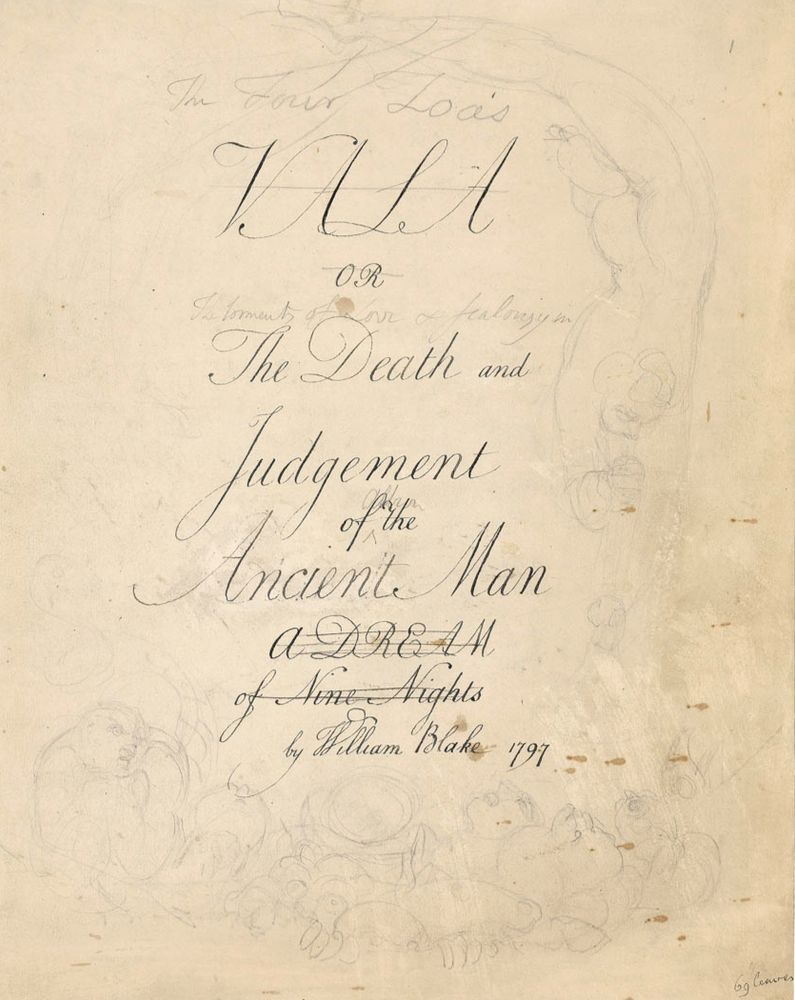 1
The Four Zoas
VALA
OR
The torments of Love & Jealousy in
The Death and
Judgement
Albion
of the
Ancient Man
a DREAM
of Nine Nights
by William Blake 1797
69 leaves